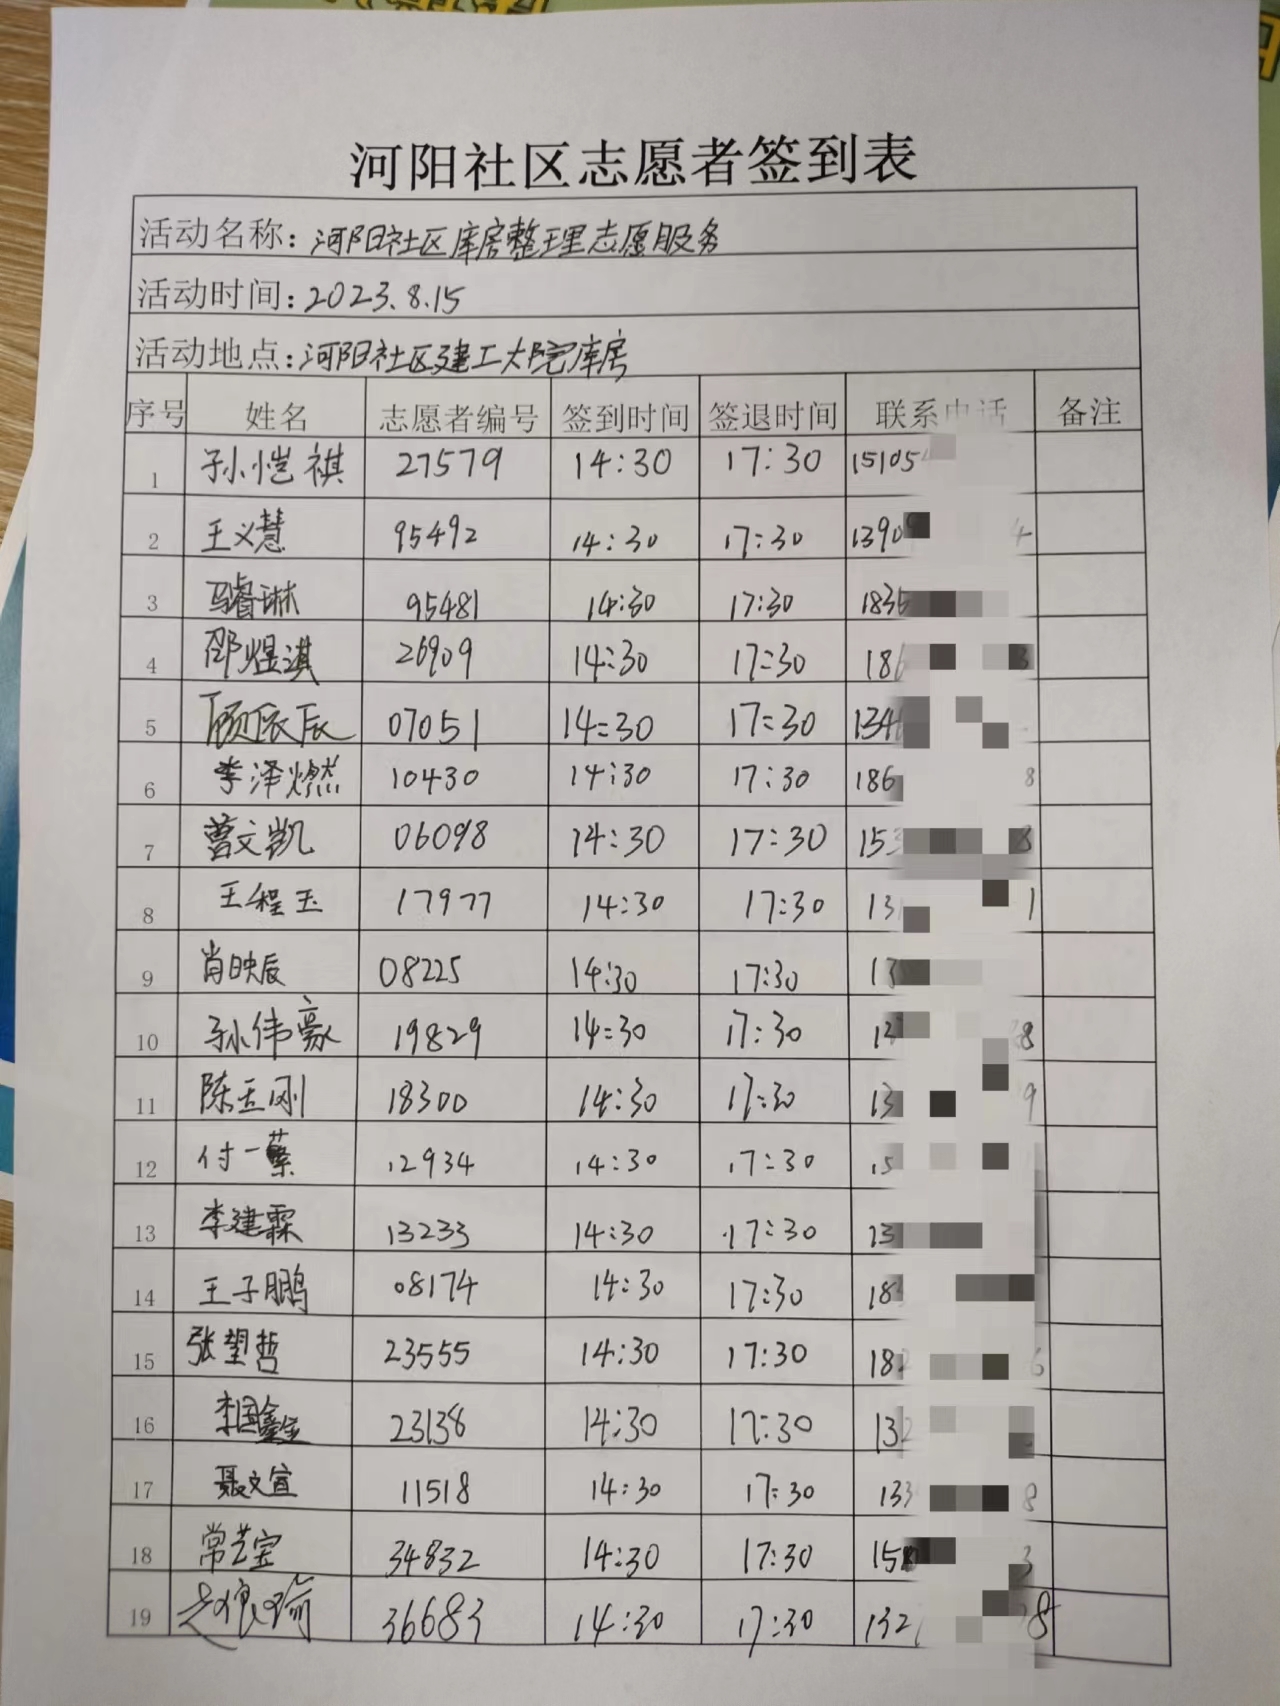 河阳社区志愿者签到表
活动名称：河阳社区库房整理志愿服务
活动时间：2023.8.15
活动地点：河阳社区建工大院库房
序号 姓名 志愿者编号 签到时间 签退时间 联系电话 备注
1 孙恺祺 27579 14:30 17:30 15105
2 王义慧 95492 14:30 17:30 1390 4
3 马睿琳 95481 14:30 17:30 1835
4 邵煜淇 26909 14:30 17:30 186 3
5 顾辰辰 07051 14:30 17:30 134
6 李泽燃 10430 14:30 17:30 186 8
7 曹文凯 06098 14:30 17:30 153 8
8 王程玉 17977 14:30 17:30 13 1
9 肖映辰 08225 14:30 17:30 13
10 孙伟豪 19829 14:30 17:30 13 8
11 陈玉刚 18300 14:30 17:30 13 9
12 付一蘩 12934 14:30 17:30 15
13 李建霖 13233 14:30 17:30 13
14 王子鹏 08174 14:30 17:30 18
15 张望哲 23555 14:30 17:30 18 6
16 李国鑫 23138 14:30 17:30 132
17 聂文宣 11518 14:30 17:30 133 8
18 常艺宝 34832 14:30 17:30 158 3
19 36683 14:30 17:30 132 8